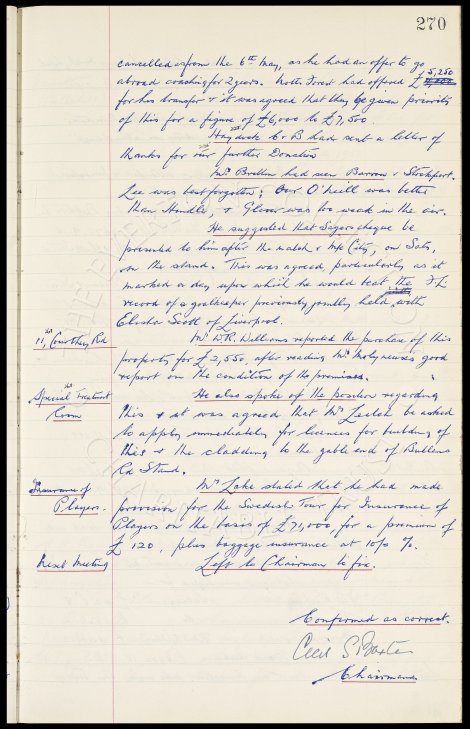 270
cancelled as from the 6th May, as he had an offer to go
abroad coaching for 2 years. Notts Forest had offered £ 5,250
for his transfer & it was agreed that they be given priority
of this for a figure of £6,000 to £7,500.
Haydock C & B had sent a letter of
thanks for our further Donation
Mr Britton had seen Barrow & Stockport.
Lee was best forgotten; Our O'Neill was better
than Hindle, & Glover was too weak in the air.
He suggested that Sagars cheque be
presented to him after the match v M/c City, on Sats,
on the stand. This was agreed, particularly as it
marked a day upon which he would beat the F.L.
record of a goalkeeper previously jointly held with
Elisha Scott of Liverpool.
11, Courthey Rd
Mr W.R. Williams reported the purchase of this
property for £2,550, after reading Mr Molyneux's good
report on the condition of the premises.
Special Treatment
Room
He also spoke of the position regarding
this & it was agreed that Mr be asked
to apply immediately for licences for building of
this & the cladding to the gable end of Bullens
Rd Stand.
Insurance of
Players.
Mr Lake stated that he had made
provision for the Swedish Tour for Insurance of
Players on the basis of £71,000 for a premium of
£120, plus baggage insurance at 10/- %.
Next Meeting
Left to Chairman to fix.
Confirmed as correct.
Cecil S. Baxter
Chairman